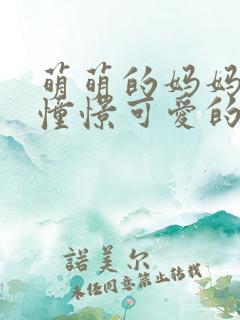 萌萌的妈妈
憧憬可爱的
諾美尔
未经同意禁止转载